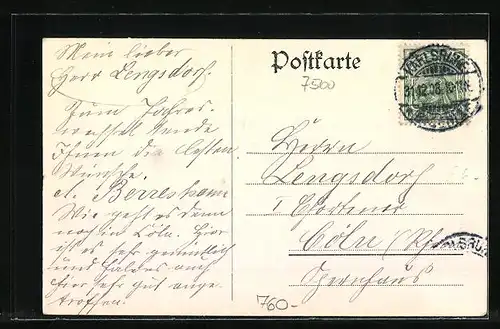 Mein lieber
Herr Lengsdorf.
Zum Jahres-
wechsel sende
Ihnen die besten
Wünsche.
A. Berresheim
Wie geht es denn
noch in Cöln. Hier
ist es sehr gemütlich
und
hier sehr gut ange-
troffen.
Postkarte
7500
KARLSRUHE
31.12.06
Herrn
Lengsdorf
I Portier
Cöln (Rhein
Opernhaus
760-